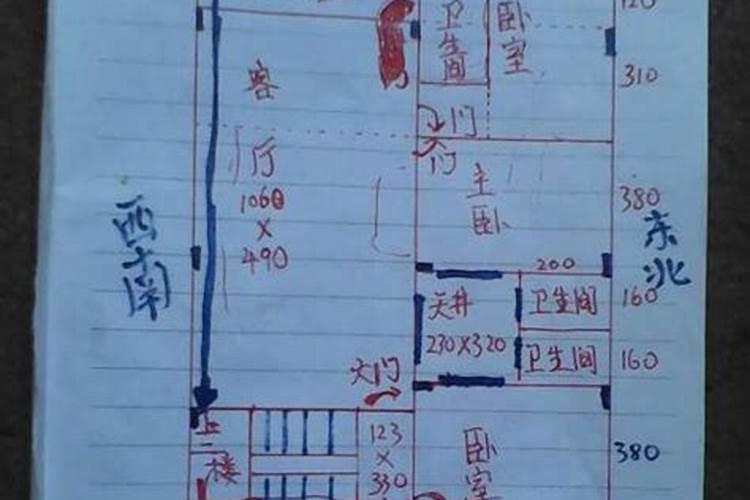 卫生间
卧室
120
310
客厅
1060
X
490
门
门
主卧
380
西南
东北
200
天井
230X320
卫生间
160
卫生间
160
大门
上二楼
123
X
330
卧室
380